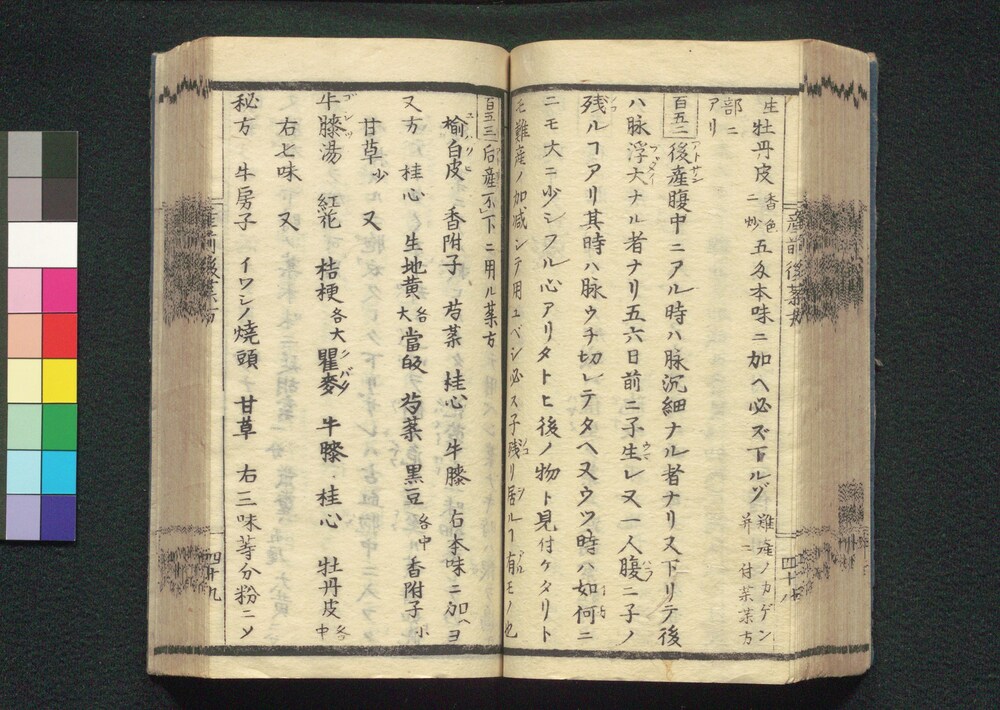 生牡丹皮香色ニ炒五匁本味ニ加ヘ必ズ下ルゾ難産ノカゲン并ニ付薬薬方
部ニアリ
百五二後産腹中ニアル時ハ脉沉細ナル者ナリ又下リテ後
ハ脉浮大ナル者ナリ五六日前ニ子生レ又一人腹ニ子ノ
残ルヿアリ其時ハ脉ウチ切レテタヘ又ウツ時ハ如何ニ
ニモ大ニ少シフル心アリタトヒ後ノ物ト見付ケタリト
モ難産ノ加减シテ用ユベシ必ス子残リ居ルヿ有モノ也
百五三后産不下ニ用ル薬方
榆白皮 香附子 芍薬 桂心 牛膝 右本味ニ加ヘヨ
又方 桂心 生地黄各大當皈 芍薬 黒豆各中香附子小
甘草少 又
牛膝湯 紅花 桔梗各大瞿麥 牛膝 桂心 牡丹皮各中
右七味 又
秘方 牛房子 イワシノ焼頭 甘草 右三味等分粉ニメ
産前後薬方
四十九